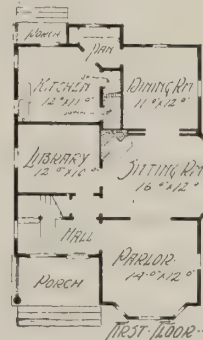 PORCH
PAN
KITCHEN
12°x11°
DINING RM
11°x12°
LIBRARY
12°x16°
SITTING RM
16°x12°
HALL
PARLOR
14°x12°
PORCH
FIRST·FLOOR·